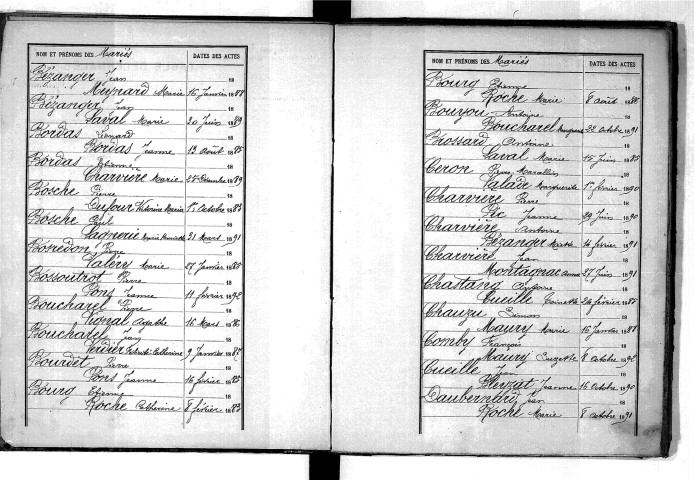 NOM ET PRÉNOMS DES Mariés DATES DES ACTES
Bézanger Jean 18
Meynard Marie 16 Janvier 1888
Bézanger Jean 18
Laval Marie 20 Juin 1889
Bordas Léonard 18
Bordas Jeanne 12 Août 1885
Bordas Etienne 18
Charvière Marie 27 Décembre 1889
Bosche Pierre 18
Dufour Victorine Maria 1er Octobre 1883
Bosche Paul 18
Lagnerie Marie 31 Mars 1891
Bosredon Pierre 18
Valéry Marie 27 Janvier 1885
Bossoutrot Pierre 18
Pons Jeanne 11 février 1892
Boucharel Pierre 18
Vional Agathe 16 Mars 1886
Boucharel Jean 18
Verdier Catherine 9 Janvier 1887
Bourdet Pierre 18
Pons Jeanne 16 février 1885
Bourg Etienne 18
Roche Catherine 8 février 1883
NOM ET PRÉNOMS DES Mariés DATES DES ACTES
Bourg Etienne 18
Roche Marie 8 août 1886
Bouzou Antoine 18
Boucharel Marguerite 22 Octobre 1891
Brossard Antoine 18
Laval Marie 15 Juin 1885
Ceron Pierre Marcellin 18
Valade Marguerite 1er février 1890
Charvière Pierre 18
Pic Jeanne 29 Juin 1890
Charvière Antoine 18
Bézanger Marthe 14 février 1891
Charvière Jean 18
Montagnac Anna 27 Juin 1891
Chastang Antoine 18
Cueille Toinette 24 février 1885
Chauzu Simon 18
Maury Marie 16 Janvier 1888
Comby François 18
Maury Suzette 8 Octobre 1892
Cueille Jean 18
Bleyzat Jeanne 16 Octobre 1890
Daubernard Jean 18
Roche Marie 8 Octobre 1891